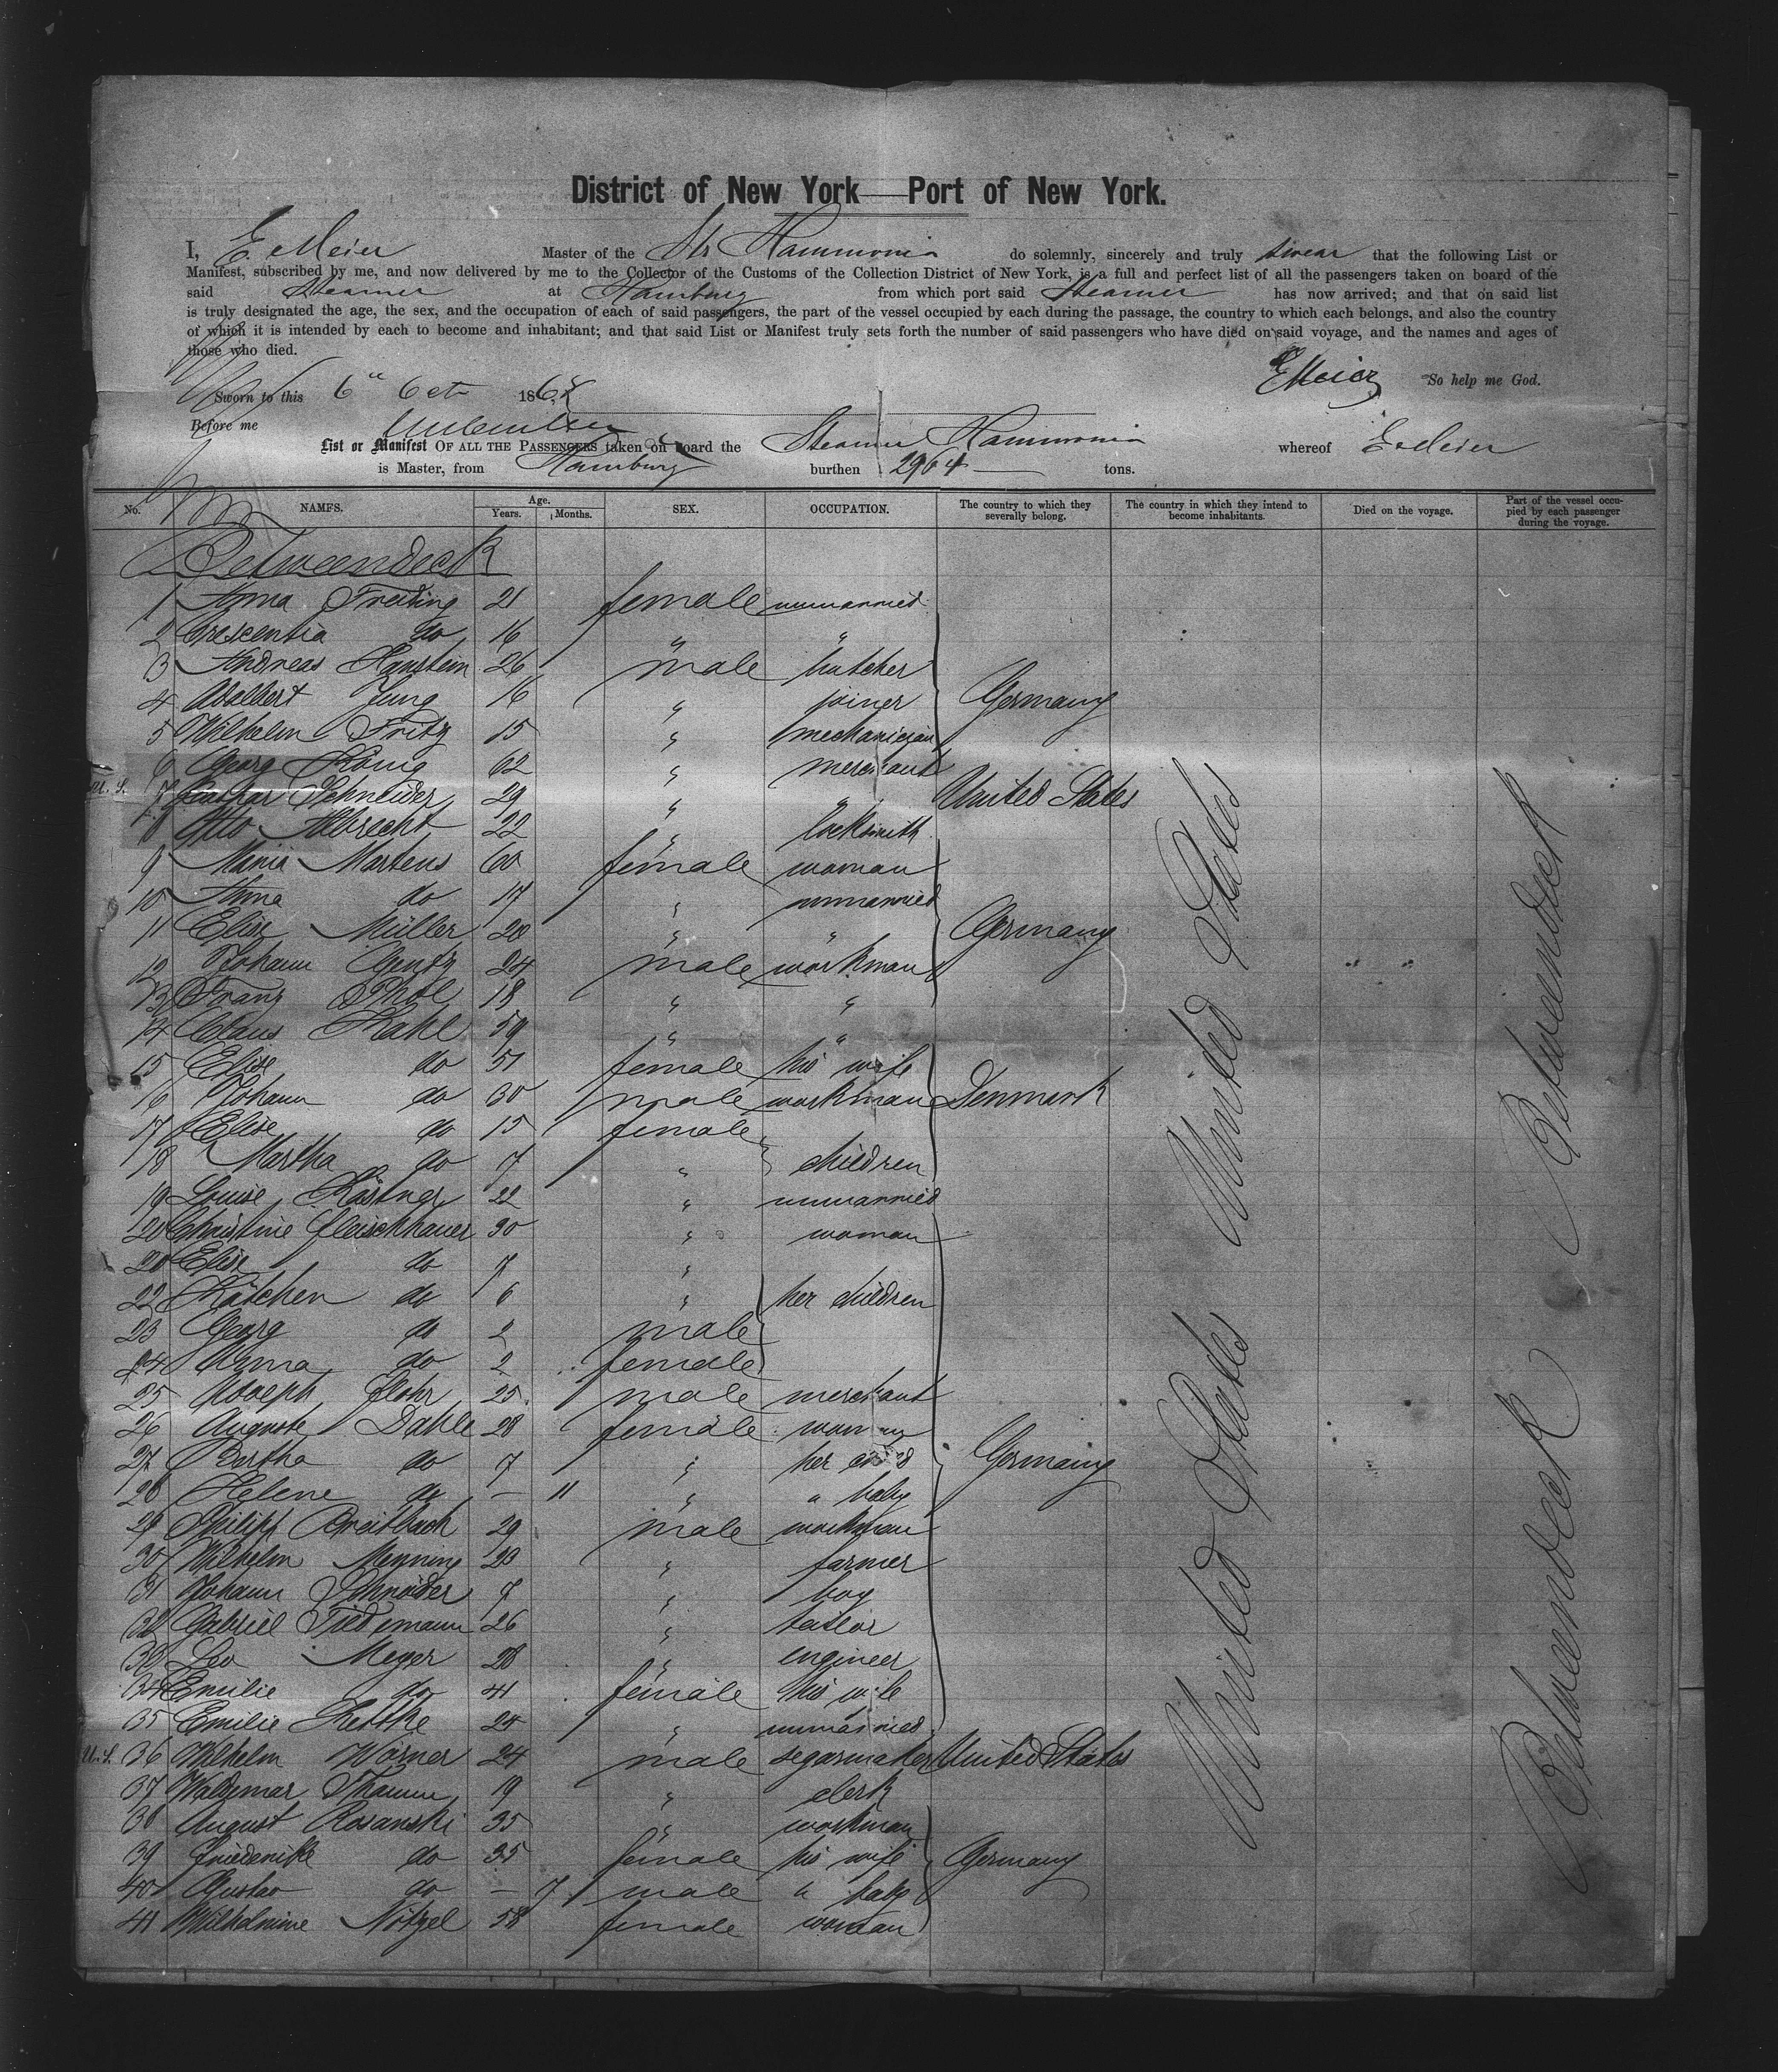 District of New York — Port of New York.
I, E. Meier Master of the Str Hammonia do solemnly, sincerely and truly swear that the following List or
Manifest, subscribed by me, and now delivered by me to the Collector of the Customs of the Collection District of New York, is a full and perfect list of all the passengers taken on board of the
said Steamer at Hamburg from which port said Steamer has now arrived; and that on said list
is truly designated the age, the sex, and the occupation of each of said passengers, the part of the vessel occupied by each during the passage, the country to which each belongs, and also the country
of which it is intended by each to become and inhabitant; and that said List or Manifest truly sets forth the number of said passengers who have died on said voyage, and the names and ages of
those who died.
E Meier So help me God.
Sworn to this 6" Oct 1868
Before me
List or Manifest OF ALL THE PASSENGERS taken on board the Steamer Hammonia whereof E. Meier
is Master, from Hamburg burthen 2964 tons.
No. NAMES. Age. Years. Months. SEX. OCCUPATION. The country to which they severally belong. The country in which they intend to become inhabitants. Died on the voyage. Part of the vessel occupied by each passenger during the voyage.
Betweendeck
1 Anna Freiding 21 female unmarried
2 Crescentia do 16 " "
3 Andreas Haustein 26 male butcher
4 Adalbert Jung 16 " joiner Germany
5 Wilhelm Fritz 15 " mechanician
6 Georg König 62 " merchant
U. S. 7 Caspar Schneider 29 " " United States
8 Otto Albrecht 22 " locksmith
9 Maria Martens 60 female woman
10 Anna do 17 " unmarried
11 Elise Müller 20 " " Germany
12 Johann Gentz 24 male workman
13 Franz 18 " "
14 Claus Kahl 59 " "
15 Elise do 51 female his wife
16 Johann do 30 male workman Denmark
17 Elise do 15 female
18 Martha do 7 " children
19 Louise Köstner 22 " unmarried
20 Christine Fleischhauer 30 " woman
20 Elise do 7 "
22 Kätchen do 6 " her children
23 Georg do 2 male
24 Anna do 2 female
25 Adolph Flohr 25 male merchant
26 Auguste Dahle 28 female woman
27 Bertha do 7 " her child Germany
28 Helene do — 11 " a baby
29 Philipp Breitbach 29 male workman
30 Wilhelm Menning 23 " farmer
31 Johann Schneider 7 " boy
32 Gabriel Tiedemann 26 " tailor
33 Leo Meyer 28 " engineer
34 Emilie do 41 female his wife
35 Emilie 24 " unmarried
U. S. 36 Wilhelm Wörner 24 male segarmaker United States
37 Waldemar Thamm 19 " clerk
38 August Rosanski 35 " workman
39 Friederike do 35 female his wife Germany
40 Gustav do — 7 male a baby
41 Wilhelmine Nötzel 58 female woman
United States United States
Betweendeck Betweendeck